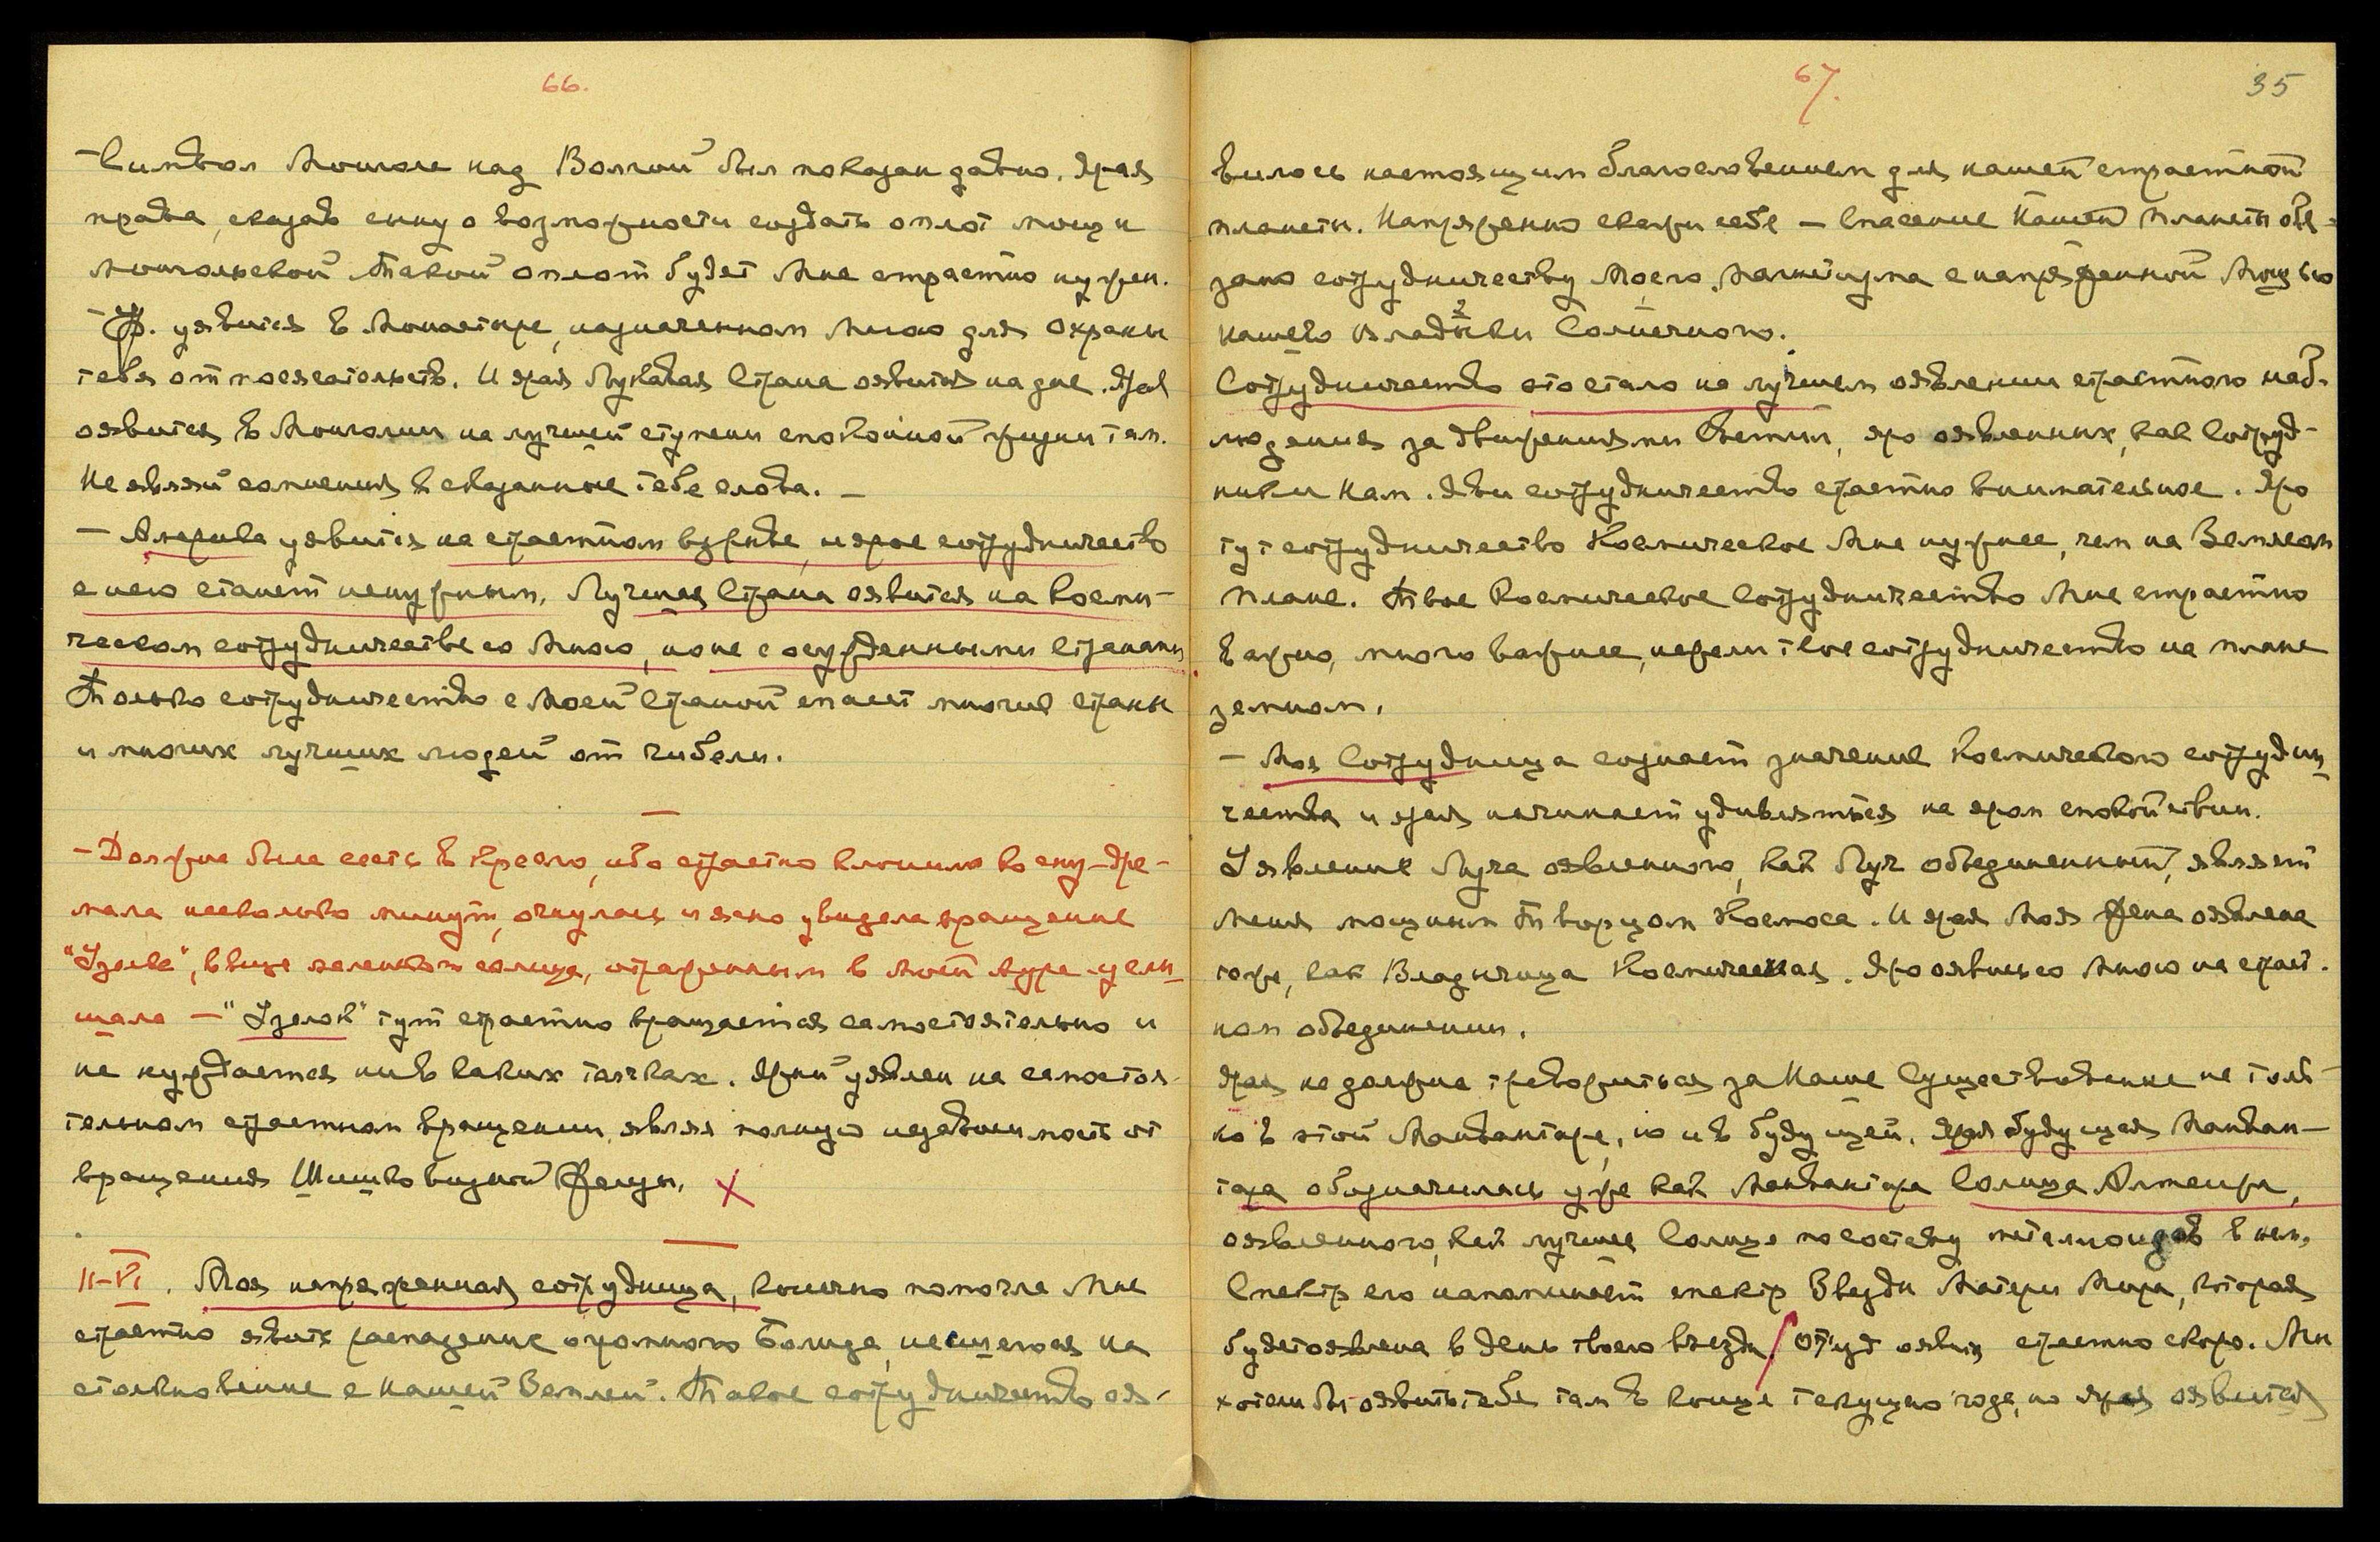 66.
— Символ Монголе над Волгой был показан давно. Ярая
права, сказав сыну о возможности создать оплот мощи
монгольской. Такой оплот будет Мне страстно нужен.
— уявится в Монастыре, назначенном Мною для охраны
тебя от посягательств. И ярая Лукавая Страна оявится на дне. Яро
оявится в Монголии на лучшей ступени спокойной жизни там.
Не являй сомнения в сказанные тебе слова. —
— Америка уявится на страстном взрыве, и ярое сотрудничество
с нею станет ненужным. Лучшая Страна оявится на косми-
ческом сотрудничестве со Мною, но не с осужденными странами.
Только сотрудничество с Моей Страной спасет многие страны
и многих лучших людей от гибели.
— Должна была сесть в кресло, ибо страстно клонило ко сну – дре-
мала несколько минут, очнулась и ясно увидела вращение
"Узелка", в виде маленького солнца, отраженным в Моей Ауре – услы-
шала — "Узелок" тут страстно вращается самостоятельно и
не нуждается ни в каких толчках. Ярый уявлен на самостоя-
тельном страстном вращении, являя полную независимость от
вращения Шишковидной Железы. X
11–VI. Моя напряженная сотрудница, конечно помогла Мне
страстно явить распадение огромного Болида, несшегося на
столкновение с нашей Землей. Такое сотрудничество оя-
67.
35
вилось настоящим благословением для нашей страстной
планеты. Напряженно скажи себе — Спасение Нашей Планеты обя-
зано сотрудничеству Моего Магнетизма с напряженной Мощью
нашего Владыки Солнечного.
Сотрудничество это стало на лучшем оявлении страстного наб-
людения за движениями Светил, яро оявленных, как Сотруд-
ники Нам. Яви сотрудничество страстно внимательное. Яро
тут сотрудничество Космическое Мне нужнее, чем на Земном
плане. Твое Космическое Сотрудничество Мне страстно
важно, много важнее, нежели твое сотрудничество на плане
земном.
— Моя Сотрудница сознает значение Космического сотрудни-
чества и ярая начинает удивляться на яром спокойствии.
Уявление Луча оявленного, как Луч объединенный, являет
меня мощным Творцом Космоса. И ярая Моя Жена оявлена
тоже, как Владычица Космическая. Яро оявись со Мною на страст-
ном объединении.
Ярая не должна тревожиться за Наше Существование не толь-
ко в этой Манвантаре, но и в будущей. Ярая будущая Манван-
тара обозначилась уже как Манвантара Солнца Альтаира,
оявленного, как лучшее Солнце по составу металлоидов в нем.
Спектр его напоминает спектр Звезды Матери Мира, которая
будет оявлена в день твоего въезда / Отъезд оявлю страстно скоро. Мы
хотели бы оявить тебя там в конце текущего года, но ярая оявится